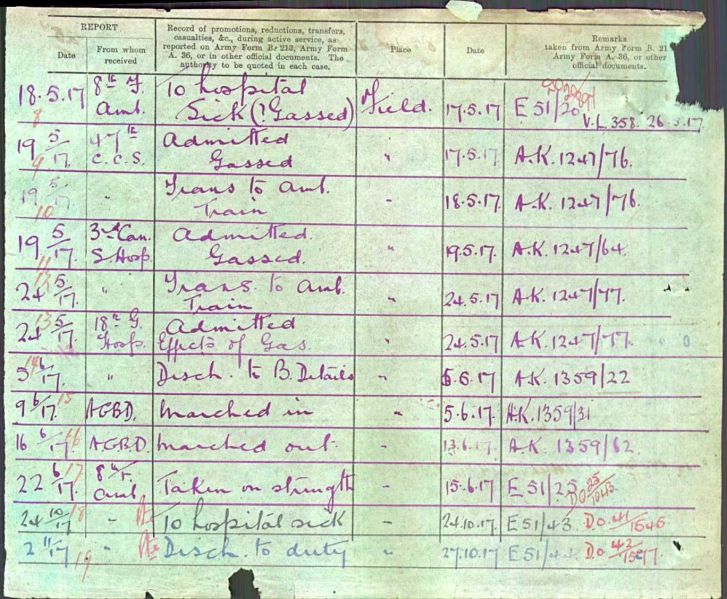 REPORT
Date
From whom received
Record of promotions, reductions, transfers, casualties, &c., during active service, as reported on Army Form B. 213, Army Form A. 36, or in other official documents. The authority to be quoted in each case.
Place
Date
Remarks
taken from Army Form B. 21
Army Form A. 36, or other official documents.
18.5.17 8th F. Amb. To hospital Sick (? Gassed) Field. 17.5.17 E 51/20
V.L. 358. 26.5.17
8
19 5/17. 47th C.C.S. Admitted Gassed " 17.5.17 A.K. 1247/76.
9
19 5/17. " Trans to Amb. Train " 18.5.17 A.K. 1247/76
10
19 5/17. 3rd Can. S. Hosp. Admitted. Gassed. " 19.5.17 A.K. 1247/64.
24 5/17. " Trans. to Amb. Train " 24.5.17 A.K. 1247/77.
24 5/17. 18th G. Hosp. Admitted Effects of Gas. " 24.5.17 A.K. 1247/77.
13
5 6/17. " Disch. to B. Details " 5.6.17 A.K. 1359/22
14
9 6/17. A.G.B.D. Marched in " 5.6.17. A.K. 1359/31
15
16 6/17 A.G.B.D. Marched out " 13.6.17 A.K. 1359/62
16
22 6/17. 8th F. Amb. Taken on strength " 15.6.17 E 51/25
17
24 10/17 " To hospital sick " 24.10.17 E 51/43 D.O. 41/1545
18
2 11/17 " Disch. to duty " 27.10.17 E 51/44 D.O. 42/1577
19